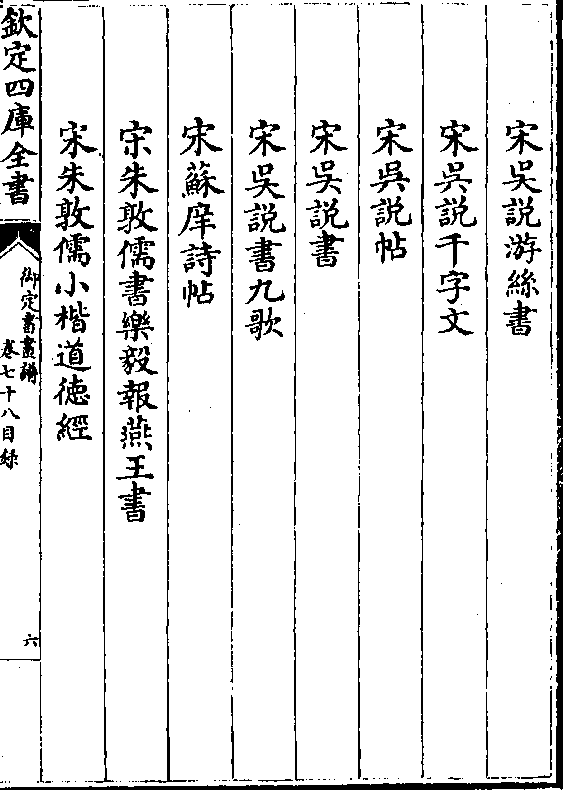 宋吳説游絲書
宋吳説千字文
宋吳説帖
宋吳説書
宋吳説書九歌
宋蘇庠詩帖
宋朱敦儒書樂毅報燕王書
宋朱敦儒小楷道徳經
欽定四庫全書
御定書畫譜
卷七十八目録
六